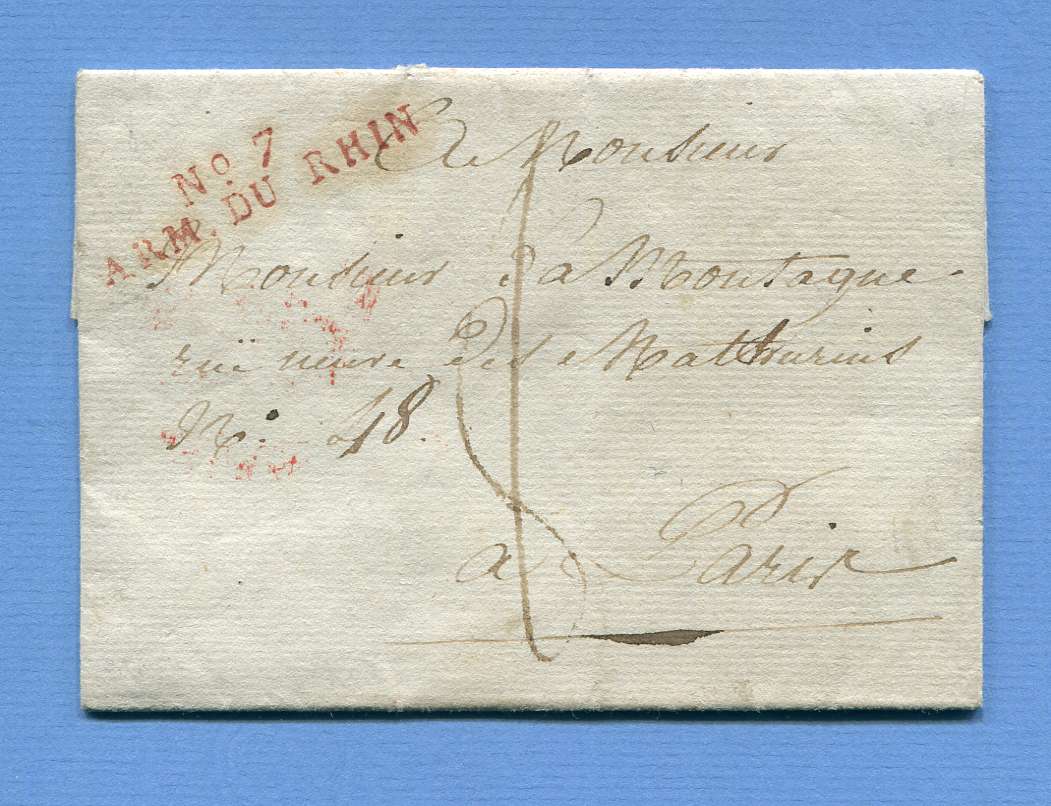 No. 7
ARM. DU RHIN
A Monsieur
Monsieur La Montague
ruë neuve des Mathurins
No. 48.
a Paris